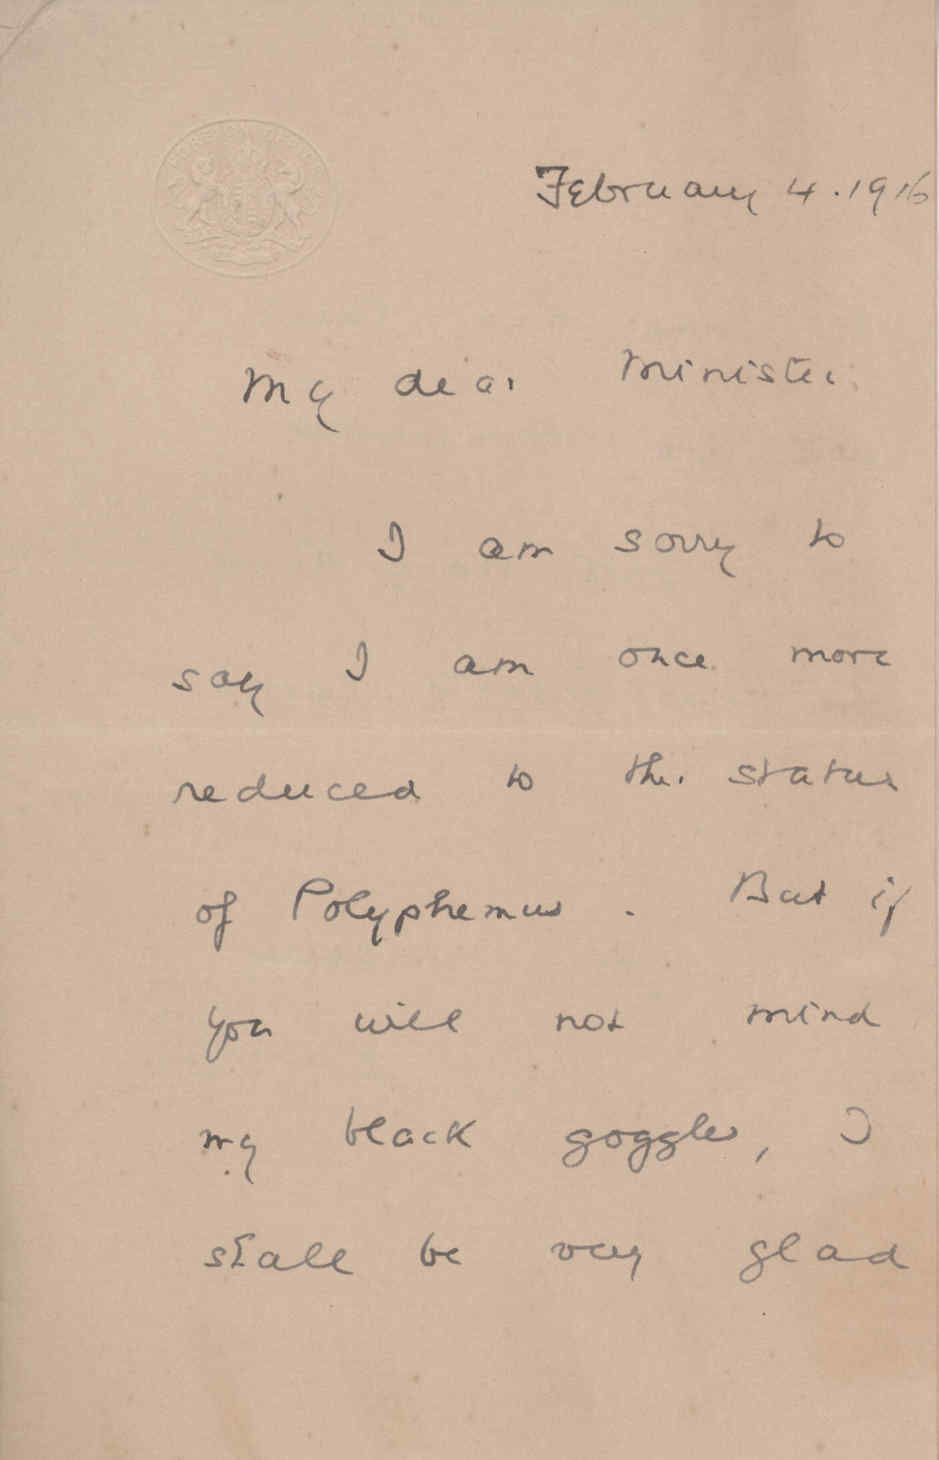 FOREIGN OFFICE
February 4. 1916
My dear Minister
I am sorry to
say I am once more
reduced to the status
of Polyphemus. But if
you will not mind
my black goggles, I
shall be very glad